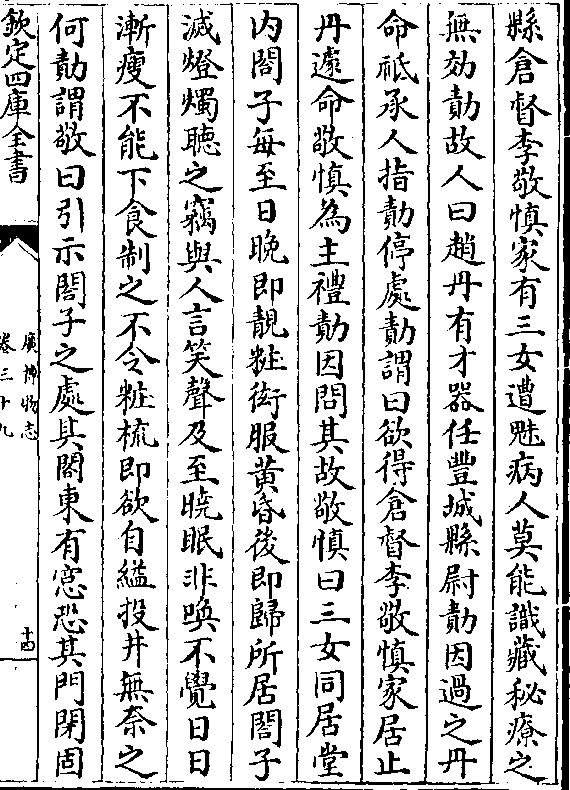 縣倉督李敬慎家有三女遭魅病人莫能識藏秘療之
無効勣故人曰趙丹有才器任豐城縣尉勣因過之丹
命祗承人指勣停處勣謂曰欲得倉督李敬慎家居止
丹遽命敬慎為主禮勣因問其故敬慎曰三女同居堂
内閤子每至日晚即靚粧衒服黃昏後即歸所居閤子
滅燈燭聽之竊與人言笑聲及至曉眠非喚不覺日日
漸瘦不能下食制之不令粧梳即欲自縊投井無奈之
何勣謂敬曰引示閤子之處其閤東有窓恐其門閉固
欽定四庫全書
廣博物志
卷三十九
十四